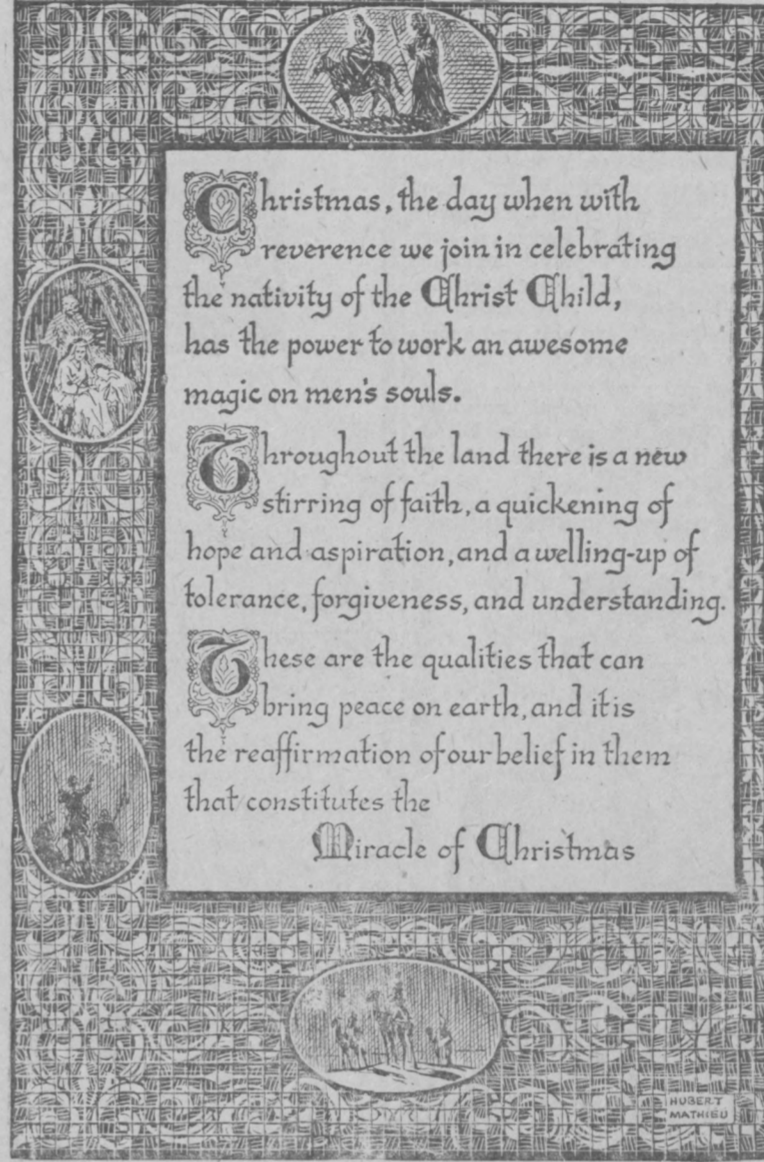 Christmas, the day when with
reverence we join in celebrating
the nativity of the Christ Child,
has the power to work an awesome
magic on men's souls.
Throughout the land there is a new
stirring of faith, a quickening of
hope and aspiration, and a welling-up of
tolerance, forgiveness, and understanding.
These are the qualities that can
bring peace on earth, and it is
the reaffirmation of our belief in them
that constitutes the
Miracle of Christmas
HUBERT
MATHIEU